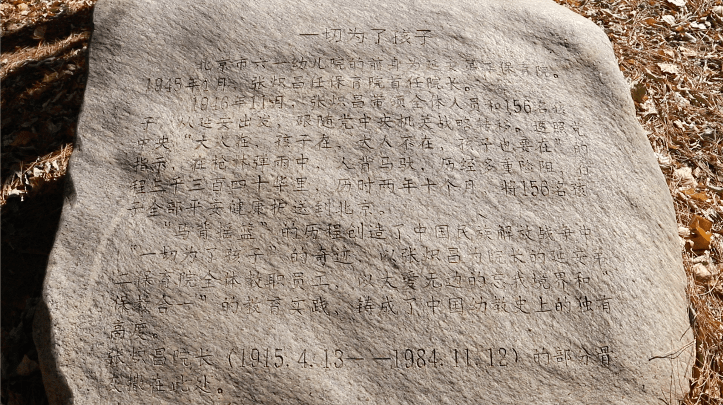 一切为了孩子
北京市六一幼儿院的前身为延安第二保育院。
1945年1月，张炽昌任保育院首任院长。
1946年11月，张炽昌带领全体人员和156名孩
子，从延安出发，跟随党中央机关战略转移。遵照党
中央“大人在，孩子在，大人不在，孩子也要在”的
指示，在枪林弹雨中，人背马驮，历经多重险阻，行
程三千三百四十华里，历时两年十个月，将156名孩
子全部平安健康护送到北京。
“马背摇篮”的历程创造了中国民族解放战争中
“一切为了孩子”的奇迹，以张炽昌为院长的延安第
二保育院全体教职员工，似大爱无边的忘我境界和“
保教合一”的教育实践，铸成了中国幼教史上的独有
高度。
张炽昌院长（1915.4.13——1984.11.12）的部分骨
灰撒在此处。